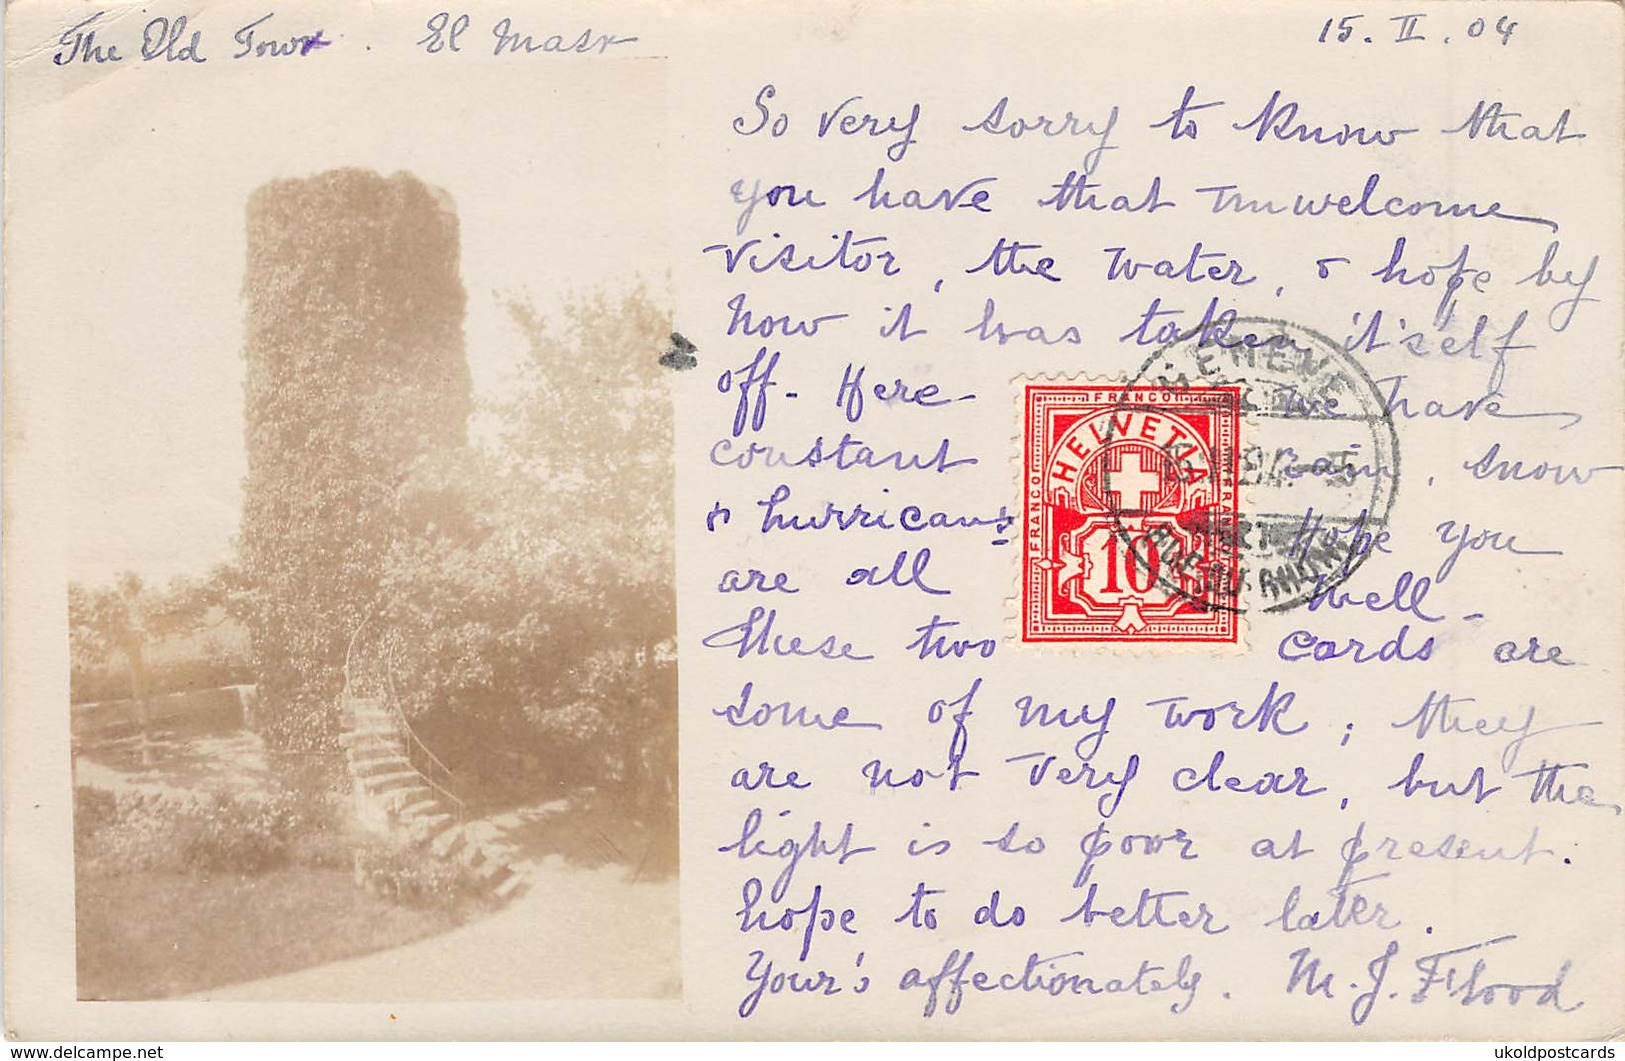 The Old Tower. El Masr
15. II. 04
So very sorry to know that
you have that unwelcome
visitor, the water, & hope by
now it has taken it'self
off. Here we have
constant rain, snow
& hurricans Hope you
are all well -
These two cards are
some of my work; they
are not very clear, but the
light is so poor at present.
hope to do better later.
Your's affectionately. M. J. Flood
FRANCO
HELVETIA
FRANCO
FRANCO
10
GENEVE
ukoldpostcards
www.delcampe.net